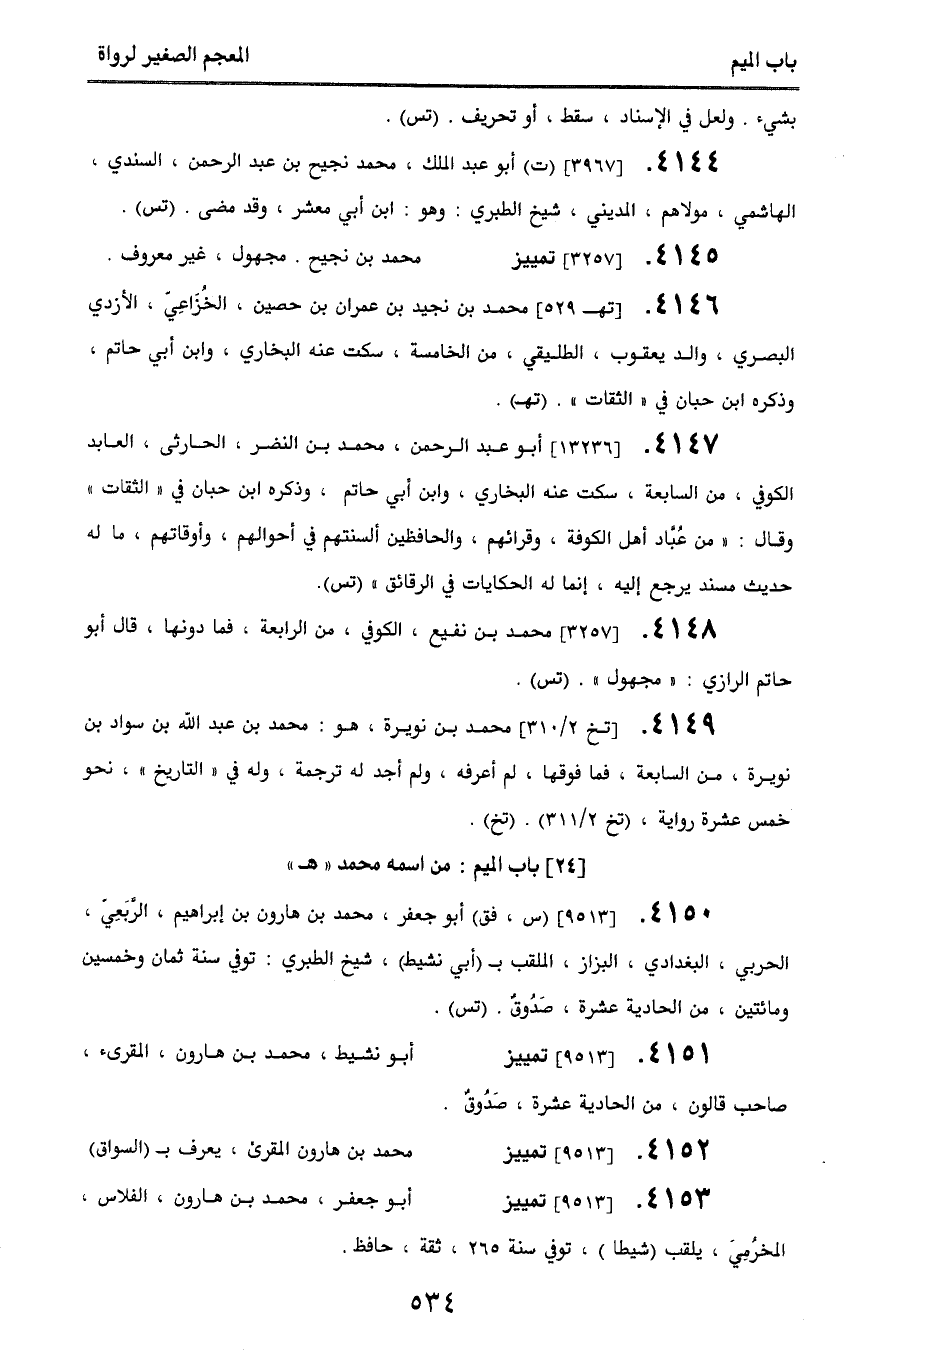 باب الميم
المعجم الصغير لرواة
بشيء . ولعل في الإسناد ، سقط ، أو تحريف . (تس) .
٤١٤٤. [٣٩٦٧] (ت) أبو عبد الملك ، محمد نجيح بن عبد الرحمن ، السندي ،
الهاشمي ، مولاهم ، المديني ، شيخ الطبري : وهو : ابن أبي معشر ، وقد مضى . (تس) .
٤١٤٥. [٣٢٥٧] تمييز محمد بن نجيح . مجهول ، غير معروف .
٤١٤٦. [تهـ ٥٢٩] محمد بن نجيد بن عمران بن حصين ، الخُزَاعِيّ ، الأزدي
البصري ، والد يعقوب ، الطليقي ، من الخامسة ، سكت عنه البخاري ، وابن أبي حاتم ،
وذكره ابن حبان في « الثقات » . (تهـ) .
٤١٤٧. [١٣٢٣٦] أبو عبد الرحمن ، محمد بن النضر ، الحارثى ، العابد
الكوفي ، من السابعة ، سكت عنه البخاري ، وابن أبي حاتم ، وذكره ابن حبان في « الثقات »
وقال : « من عُبَّاد أهل الكوفة ، وقرائهم ، والحافظين ألسنتهم في أحوالهم ، وأوقاتهم ، ما له
حديث مسند يرجع إليه ، إنما له الحكايات في الرقائق » (تس).
٤١٤٨. [٣٢٥٧] محمد بن نفيع ، الكوفي ، من الرابعة ، فما دونها ، قال أبو
حاتم الرازي : « مجهول » . (تس) .
٤١٤٩. [تخ ٣١٠/٢] محمد بن نويرة ، هو : محمد بن عبد الله بن سواد بن
نويرة ، من السابعة ، فما فوقها ، لم أعرفه ، ولم أجد له ترجمة ، وله في « التاريخ » ، نحو
خمس عشرة رواية ، (تخ ٣١١/٢) . (تخ) .
[٢٤] باب الميم : من اسمه محمد « هـ »
٤١٥٠. [٩٥١٣] (س ، فق) أبو جعفر ، محمد بن هارون بن إبراهيم ، الرَّبَعِيّ ،
الحربي ، البغدادي ، البزاز ، الملقب بـ (أبي نشيط) ، شيخ الطبري : توفي سنة ثمان وخمسين
ومائتين ، من الحادية عشرة ، صَدُوقٌ . (تس) .
٤١٥١. [٩٥١٣] تمييز أبو نشيط ، محمد بن هارون ، المقرىء ،
صاحب قالون ، من الحادية عشرة ، صَدُوقٌ .
٤١٥٢. [٩٥١٣] تمييز محمد بن هارون المقرئ ، يعرف بـ (السواق)
٤١٥٣. [٩٥١٣] تمييز أبو جعفر ، محمد بن هارون ، الفلاس ،
المخرُمِيَ ، يلقب (شيطا ) ، توفي سنة ٢٦٥ ، ثقة ، حافظ .
٥٣٤